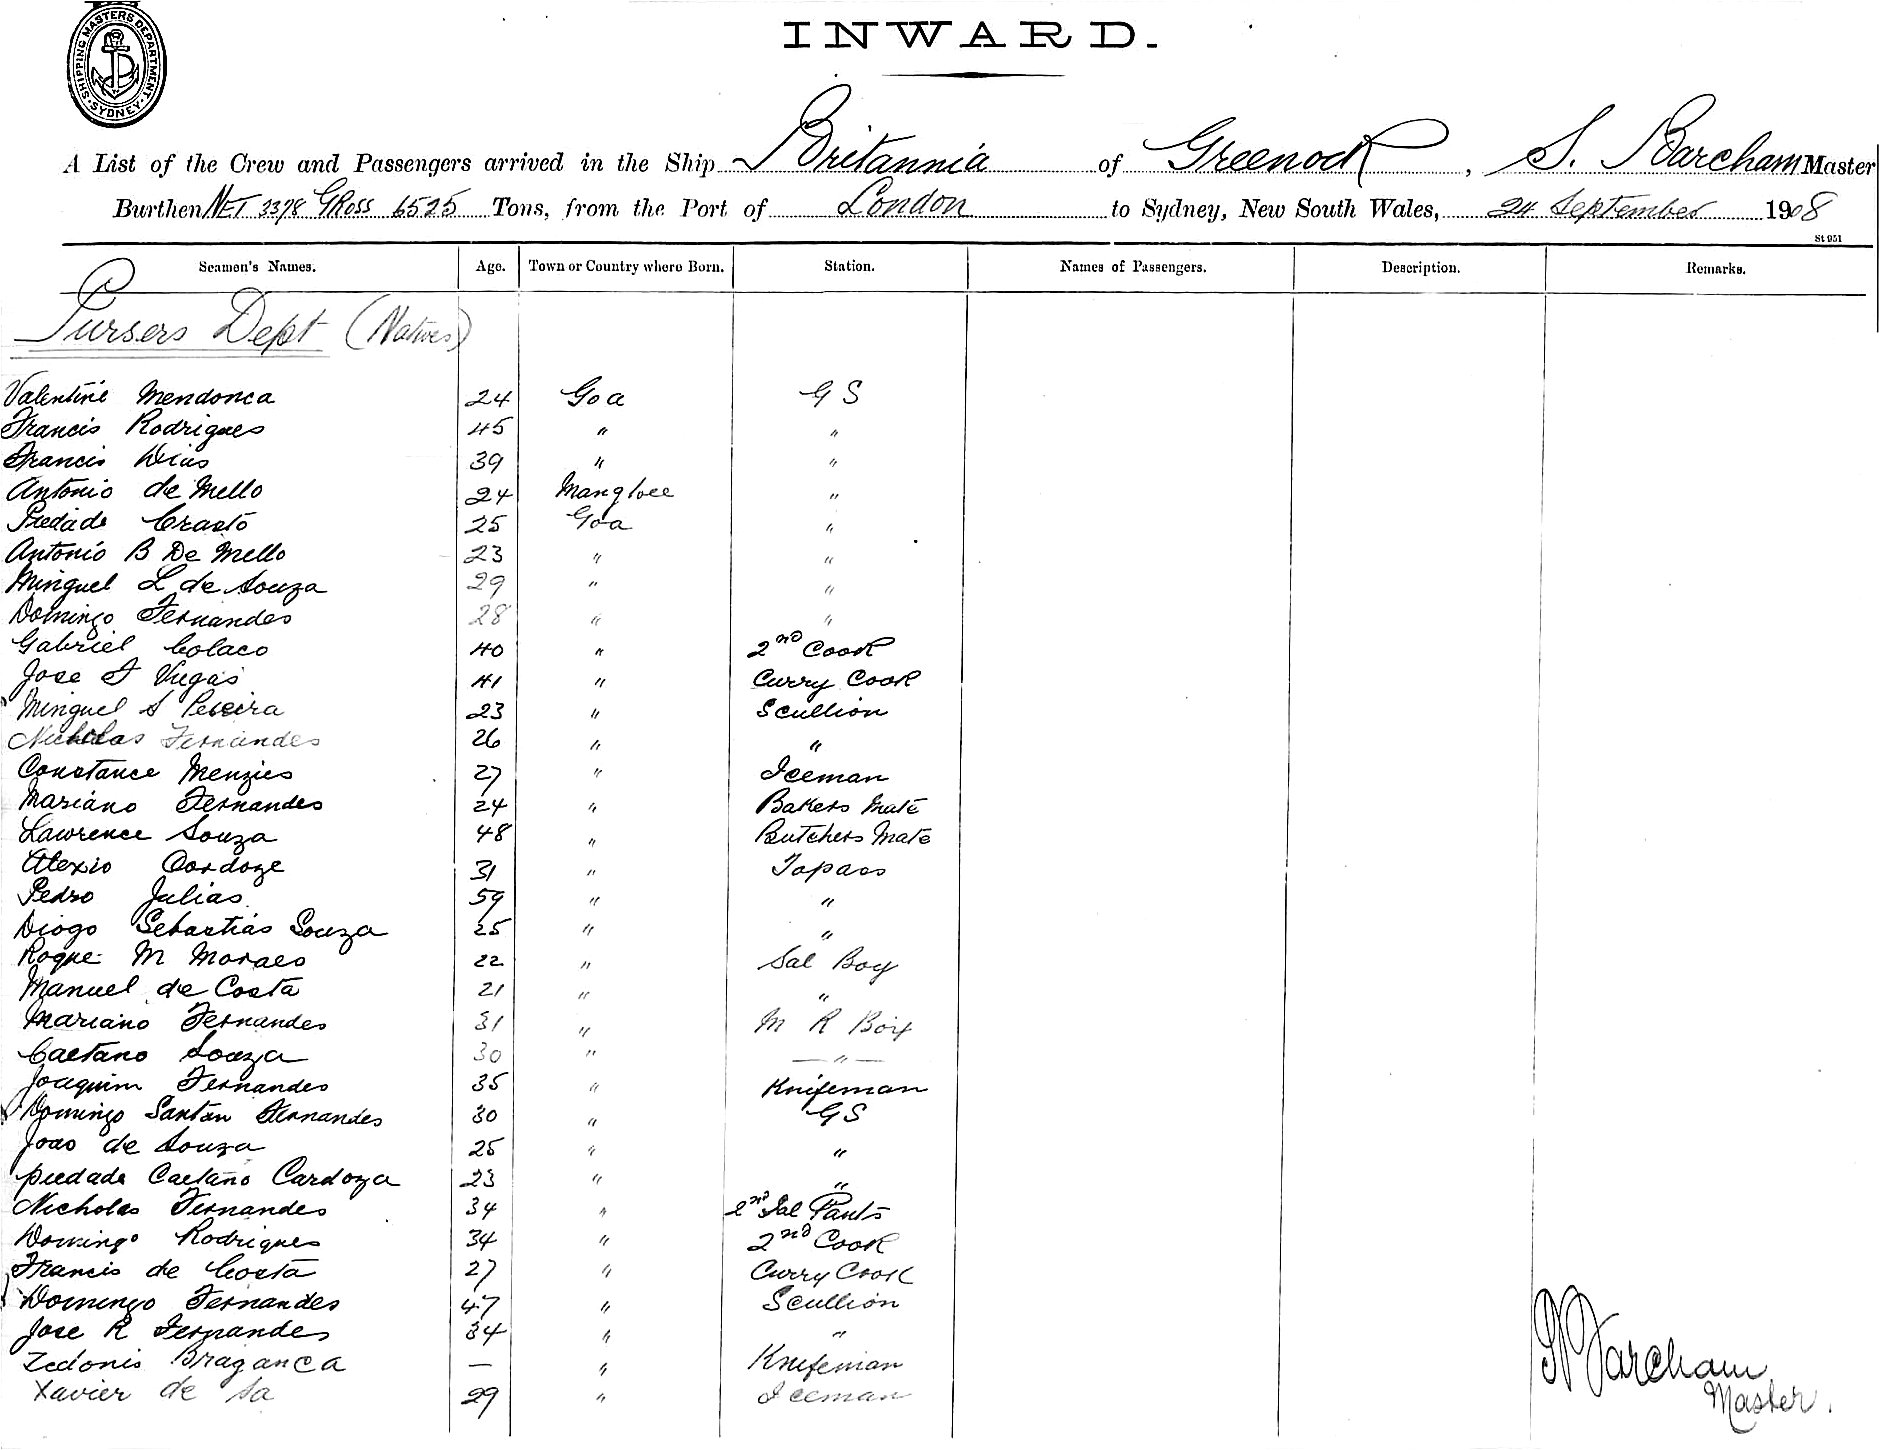 SHIPPING MASTERS DEPARTMENT. SYDNEY.
INWARD.
A List of the Crew and Passengers arrived in the Ship Britannia of Greenock, S. Barcham Master
Burthen NET 3378 GROSS 6525 Tons, from the Port of London to Sydney, New South Wales, 24 September 1908
St 951
Seamen's Names. Age. Town or Country where Born. Station. Names of Passengers. Description. Remarks.
Pursers Dept (Natives)
Valentine Mendonca 24 Goa G S
Francis Rodrigues 45 " "
Francis Dias 39 " "
Antonio de Mello 24 "
Piedade Crasto 25 Goa "
Antonio B De Mello 23 " "
Minguel L de Souza 29 " "
Domingo Fernandes 28 " "
Gabriel Colaco 40 " 2nd Cook
Jose F Viegas 41 " Curry Cook
Minguel S Pereira 23 " Scullion
Nicholas Fernandes 26 " "
Constance Menzies 27 " Iceman
Mariano Fernandes 24 " Bakers Mate
Lawrence Souza 48 " Butchers Mate
Alexio Cordoze 31 " Topass
Pedro Julias 59 " "
Diogo Sebastias Souza 25 " "
Roque M Moraes 22 " Sal Boy
Manuel de Costa 21 " "
Mariano Fernandes 31 " M R Boy
Caetano Souza 30 " "
Joaquim Fernandes 35 " Knifeman
Domingo Santan Fernandes 30 " G S
Joao de Souza 25 " "
Piedade Caetano Cardoza 23 " "
Nicholas Fernandes 34 " 2nd Sal Pants
Domingo Rodrigues 34 " 2nd Cook
Francis de Costa 27 " Curry Cook
Domingo Fernandes 47 " Scullion
Jose R Fernandes 34 " "
Zedonis Braganca — " Knifeman
Xavier de Sa 29 " Iceman
S Barcham
Master.